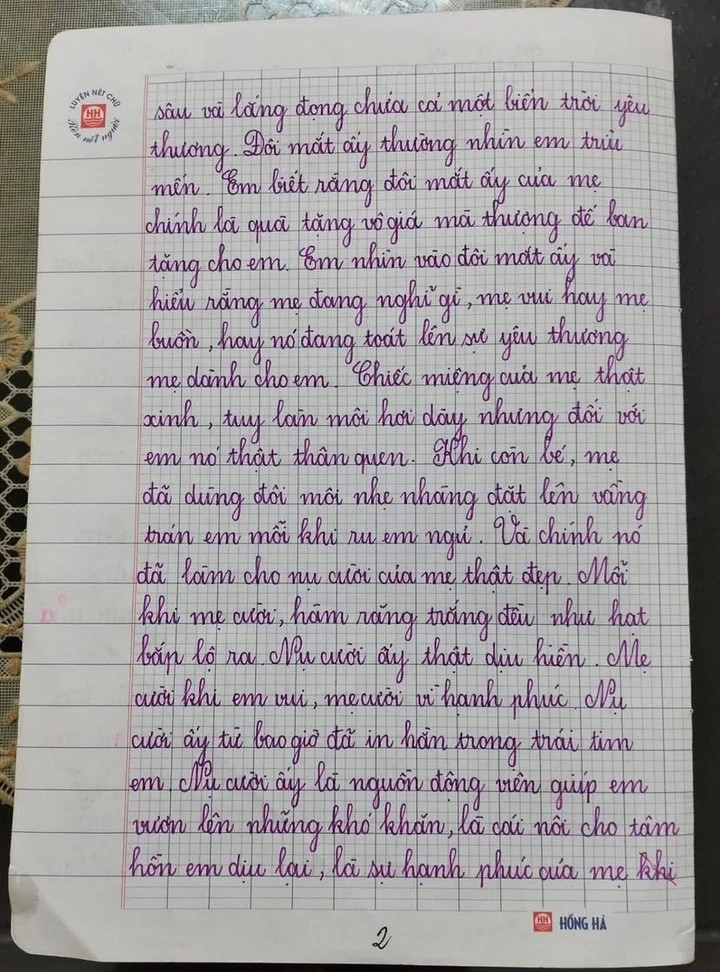 LUYỆN NÉT CHỮ
HH
Rèn nết người
sâu và lắng đọng chứa cả một biển trời yêu
thương. Đôi mắt ấy thường nhìn em trìu
mến. Em biết rằng đôi mắt ấy của mẹ
chính là quà tặng vô giá mà thượng đế ban
tặng cho em. Em nhìn vào đôi mắt ấy và
hiểu rằng mẹ đang nghĩ gì, mẹ vui hay mẹ
buồn, hay nó đang toát lên sự yêu thương
mẹ dành cho em. Chiếc miệng của mẹ thật
xinh, tuy làn môi hơi dày nhưng đối với
em nó thật thân quen. Khi còn bé, mẹ
đã dùng đôi môi nhẹ nhàng đặt lên vầng
trán em mỗi khi ru em ngủ. Và chính nó
đã làm cho nụ cười của mẹ thật đẹp. Mỗi
khi mẹ cười, hàm răng trắng đều như hạt
bắp lộ ra. Nụ cười ấy thật dịu hiền. Mẹ
cười khi em vui, mẹ cười vì hạnh phúc. Nụ
cười ấy từ bao giờ đã in hằn trong trái tim
em. Nụ cười ấy là nguồn động viên giúp em
vươn lên những khó khăn, là cái nôi cho tâm
hồn em dịu lại, là sự hạnh phúc của mẹ khi
HH HỒNG HÀ
2